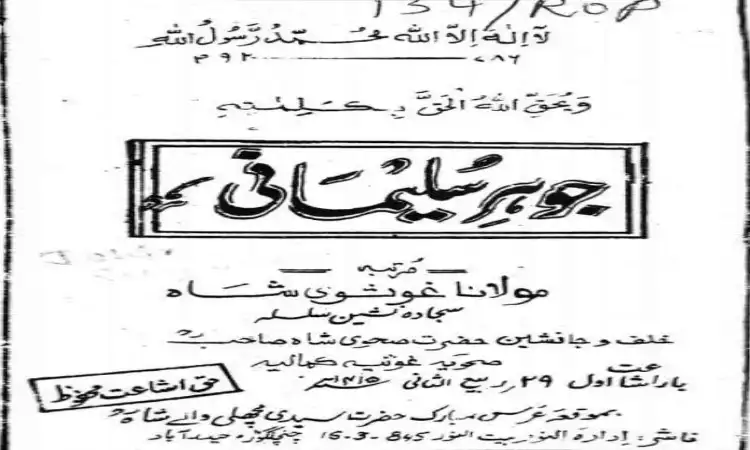 134/ROP
لا الٰہ الا اللہ محمد رسول اللہ
۷۸۶ ۹۲
وَيُحِقُّ اللّٰهُ الْحَقَّ بِكَلِمٰتِهٖ
جوہرِ سلیمانی
مرتبہ
مولانا غوثوی شاہ
سجادہ نشین سلسلہ
خلف و جانشین حضرت صحوی شاہ صاحبؒ
صحویہ غوثیہ کمالیہ
بار اشاعت اول ۲۹ ربیع الثانی ۱۴۱۵ھ
حق اشاعت محفوظ
بموقعہ عرس مبارک حضرت سیدی مچھلی والے شاہؒ
ناشر: ادارہ النور بیت النور 845-3-16 چنچلگوڑہ حیدرآباد